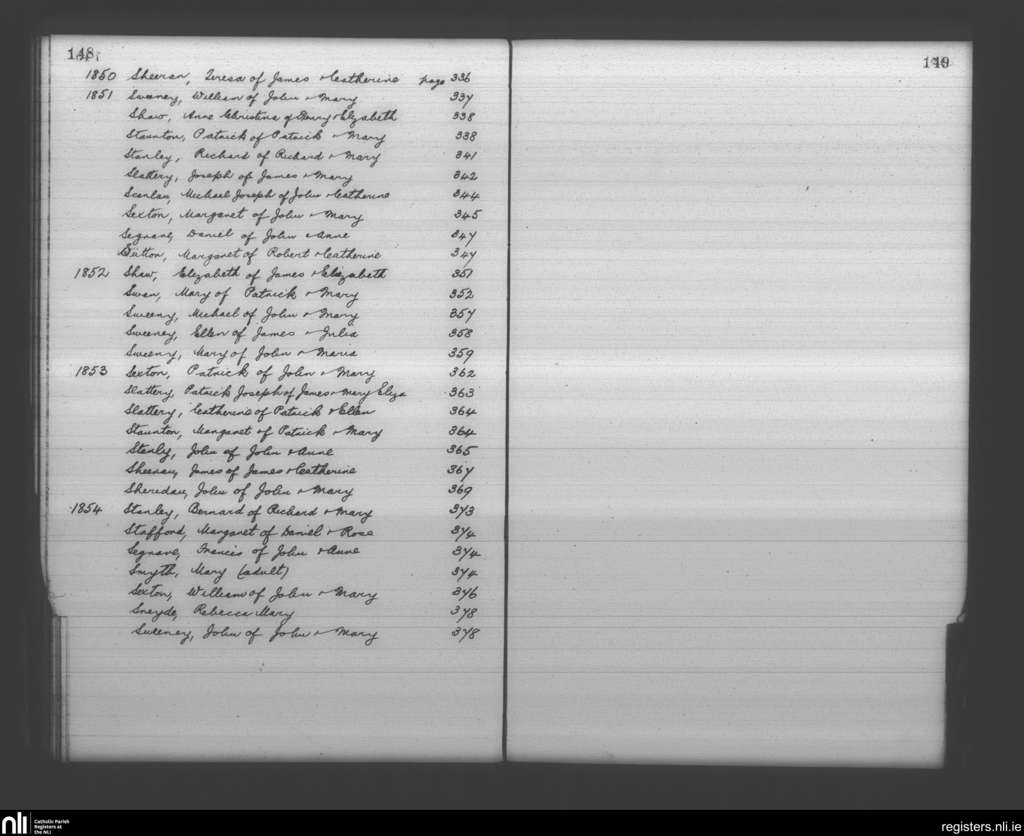 148
1850 Sheeran, Teresa of James & Catherine page 336
1851 Sweeney, William of John & Mary 337
Shaw, Anne Christina of Henry & Elizabeth 338
Staunton, Patrick of Patrick & Mary 338
Stanley, Richard of Richard & Mary 341
Slattery, Joseph of James & Mary 342
Scanlan, Michael Joseph of John & Catherine 344
Sexton, Margaret of John & Mary 345
Segrave, Daniel of John & Anne 347
Sutton, Margaret of Robert & Catherine 347
1852 Shaw, Elizabeth of James & Elizabeth 351
Swan, Mary of Patrick & Mary 352
Sweeny, Michael of John & Mary 357
Sweeney, Ellen of James & Julia 358
Sweeny, Mary of John & Maria 359
1853 Sexton, Patrick of John & Mary 362
Slattery, Patrick Joseph of James & Mary Eliza 363
Slattery, Catherine of Patrick & Ellen 364
Staunton, Margaret of Patrick & Mary 364
Stanly, John of John & Anne 365
Sheenan, James of James & Catherine 367
Sheridan, John of John & Mary 369
1854 Stanley, Bernard of Richard & Mary 373
Stafford, Margaret of Daniel & Rose 374
Segrave, Francis of John & Anne 374
Smyth, Mary (adult) 374
Sexton, William of John & Mary 376
Sneyde, Rebecca Mary 378
Sweeney, John of John & Mary 378
149
nli
Catholic Parish
Registers at
the NLI
registers.nli.ie